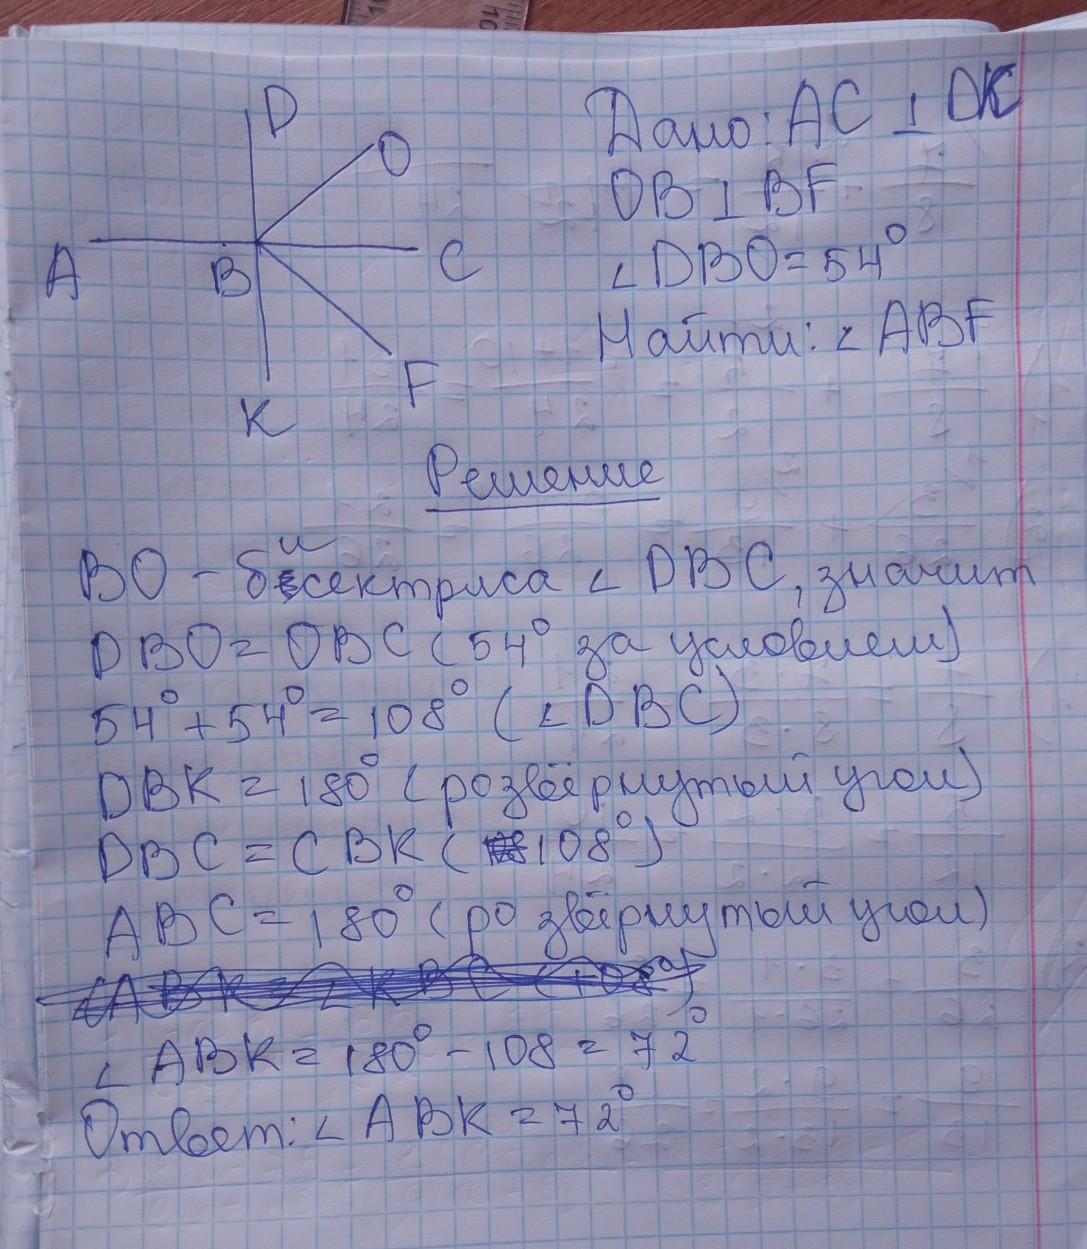 D
O
A
B
C
F
K
Дано: AC ⊥ DK
OB ⊥ BF
∠DBO = 54°
Найти: ∠ ABF
Решение
BO - бисектриса ∠ DBC, значит
DBO = OBC (54° за условием)
54° + 54° = 108° (∠DBC)
DBK = 180° (розвёрнутый угол)
DBC = CBK (108°)
ABC = 180° (розвёрнутый угол)
∠ ABK = 180° - 108 = 72°
Ответ: ∠ ABK = 72°